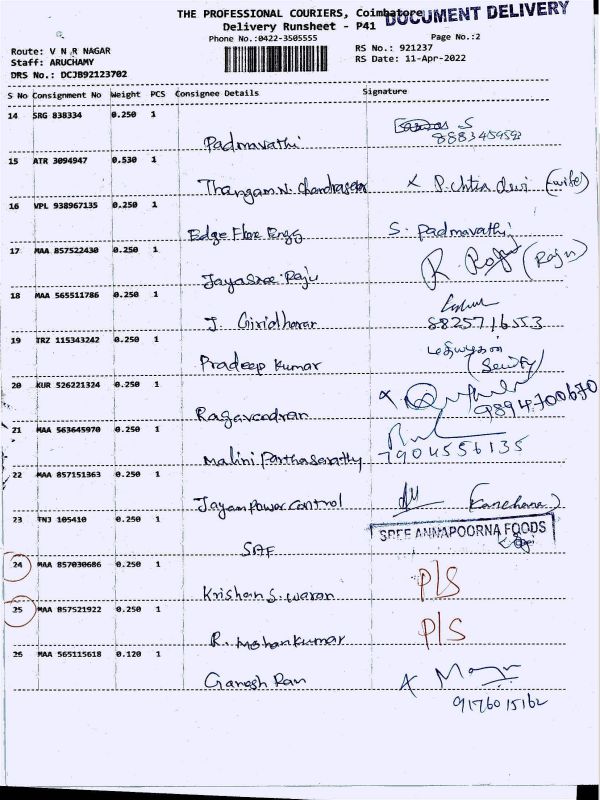 THE PROFESSIONAL COURIERS, Coimbatore
DOCUMENT DELIVERY
Delivery Runsheet - P41
Phone No.:0422-3505555
Page No.:2
Route: V N R NAGAR
RS No.: 921237
Staff: ARUCHAMY
RS Date: 11-Apr-2022
DRS No.: DCJB92123702
S No Consignment No Weight PCS Consignee Details Signature
14 SRG 838334 0.250 1
S
8883459593
Padmavathi
15 ATR 3094947 0.530 1
Thangam.N. Chandrasekar (wife)
16 VPL 938967135 0.250 1
Edge Flex Engg S. Padmavathi
17 MAA 857522430 0.250 1
Jayasree Raju R. (Raju)
18 MAA 565511786 0.250 1
J. Giridharar 8825716553
19 TRZ 115343242 0.250 1
Pradeep Kumar
20 KUR 526221324 0.250 1
9894700670
21 MAA 563645970 0.250 1
Malini Parthasarathy 7904556135
22 MAA 857151363 0.250 1
Jayam Power Control (Kanchana)
23 TNJ 105410 0.250 1
SREE ANNAPOORNA FOODS
24 MAA 857030686 0.250 1
P/S
25 MAA 857521922 0.250 1
P/S
R. Mohankumar
26 MAA 565115618 0.120 1
Ganesh Ram
9176015162